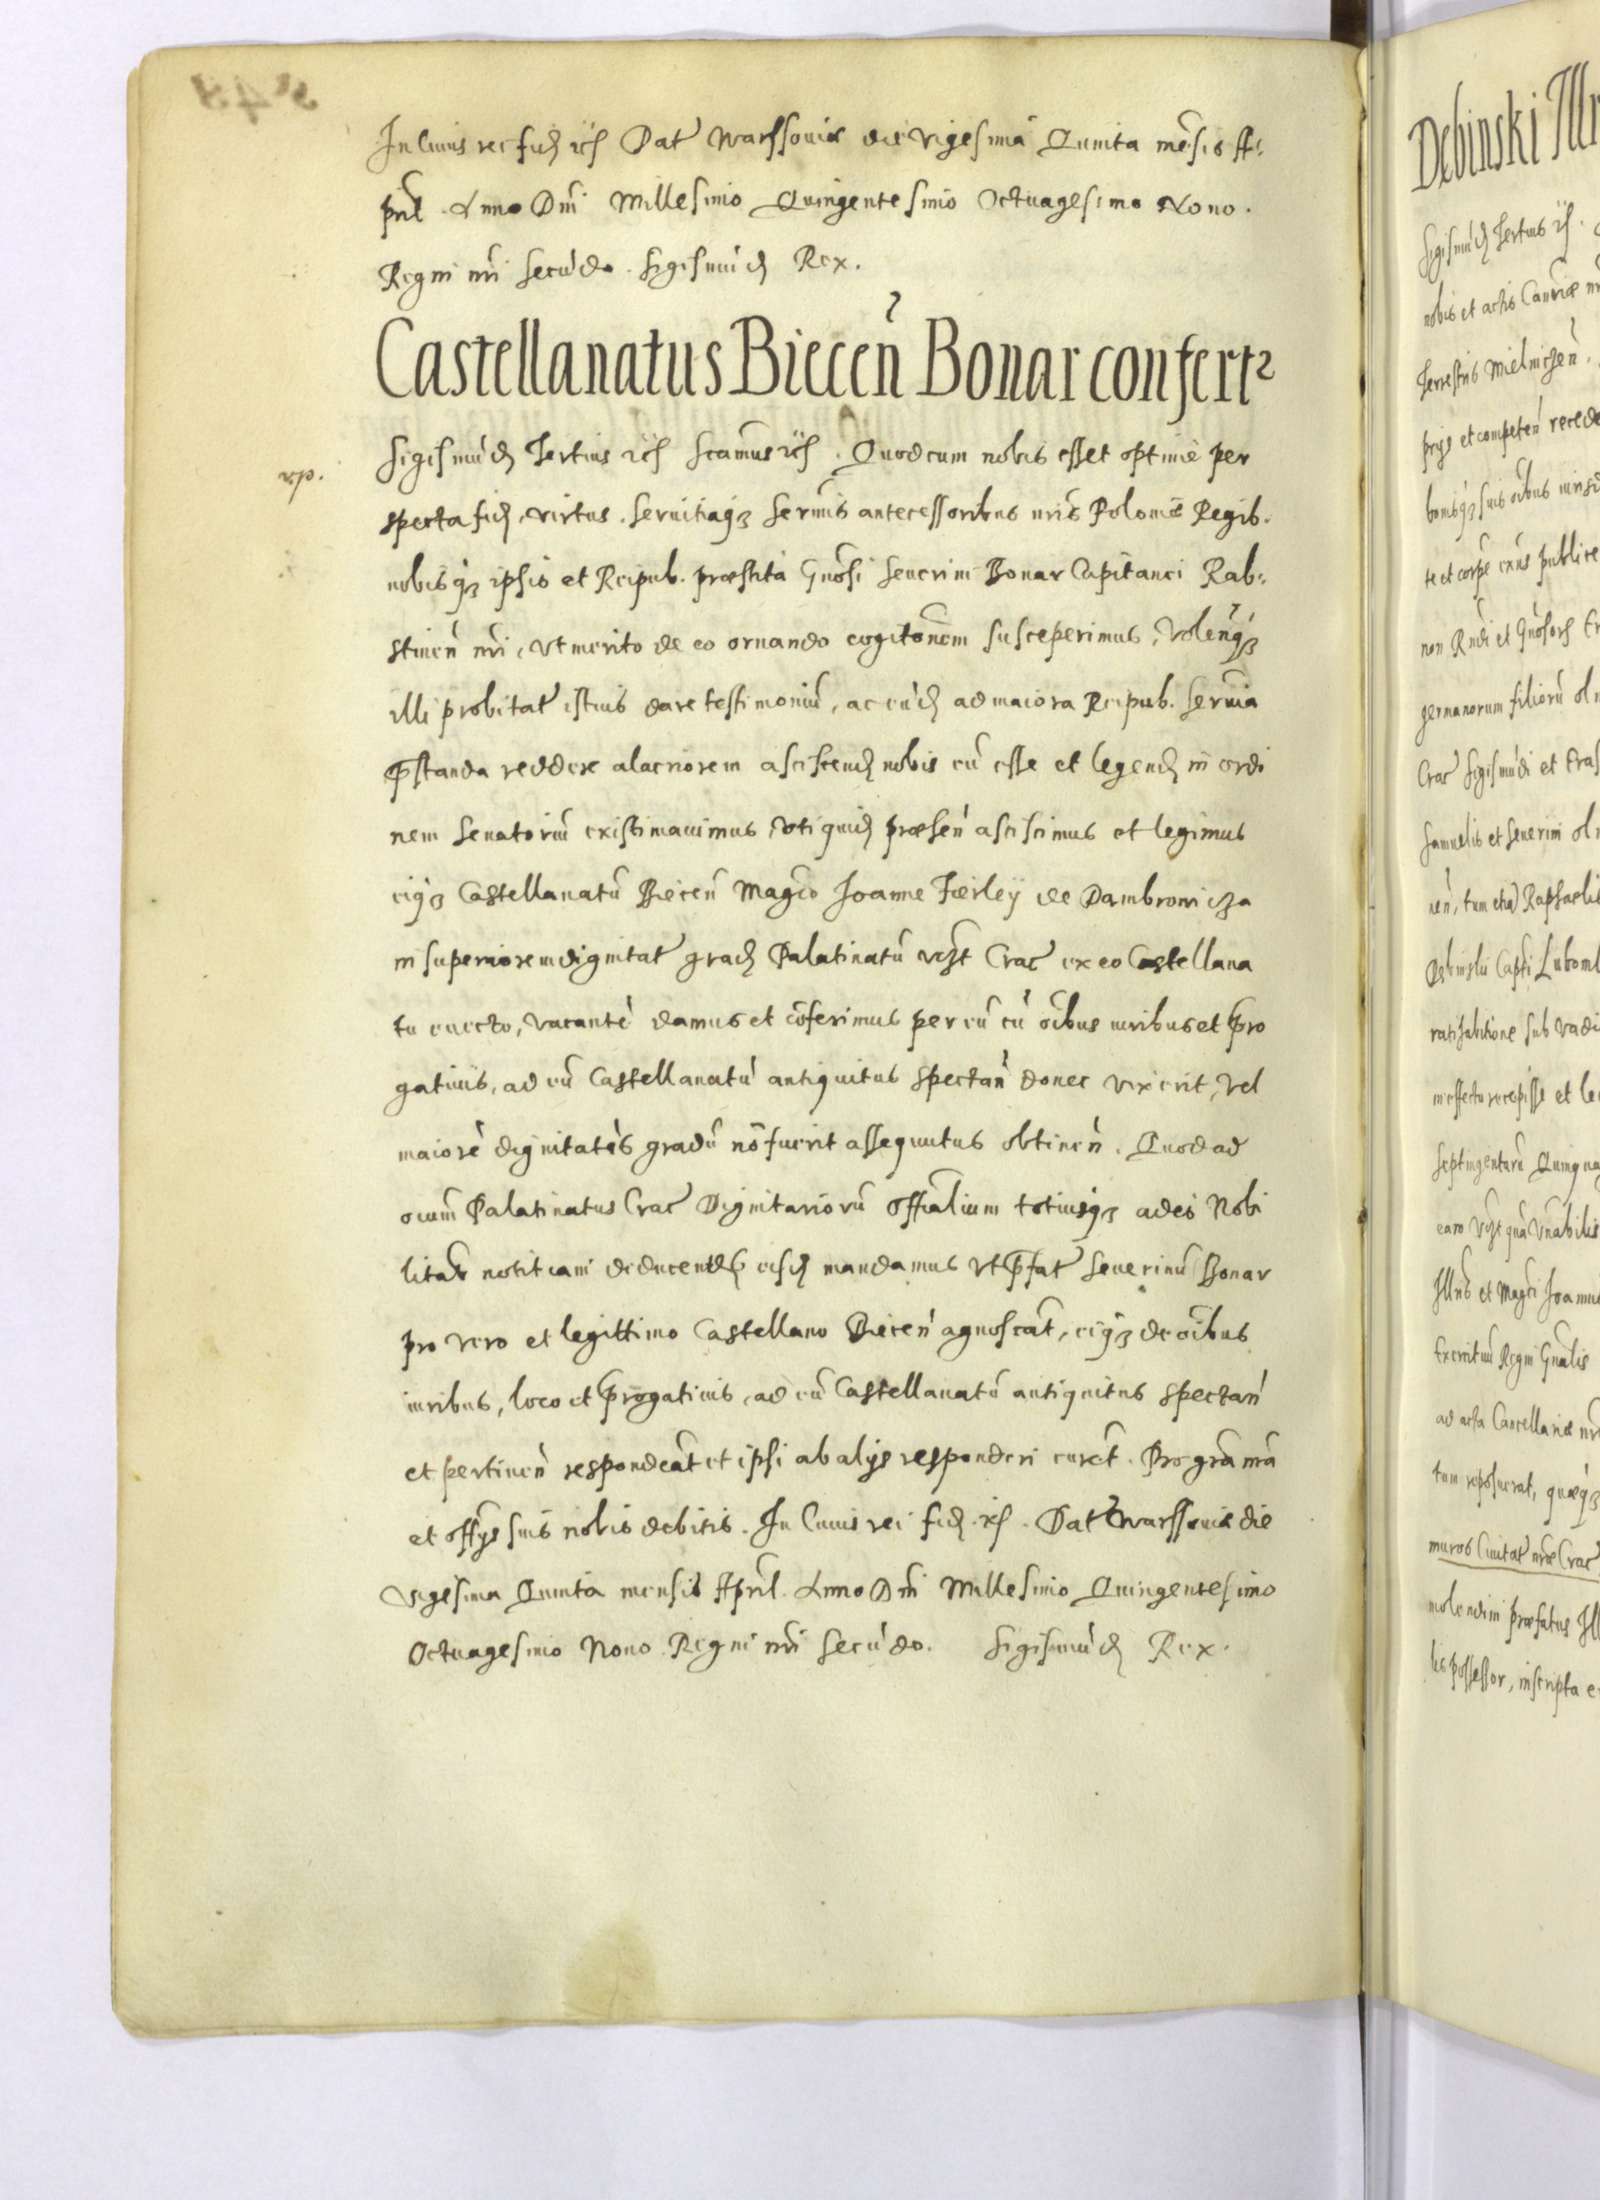 In cuius rei fid etc Dat Warssoviæ die vigesima Quinta mẽsis A-
pril Anno Dni Millesimo Quingentesimo Octuagesimo Nono.
Regni nri Secũdo. Sigismũd Rex.
Castellanatus Biecen Bonar confert
Sigismũd Tertius etc Scamus etc. Quod cum nobis esset optime per
specta fid, virtus, servitiaq3 Sermis antecessoribus nris Poloniæ Regib.
nobisq3 ipsis et Reipub. præstita Gnosi Severini Bonar Capitanei Rab-
stinen nri, Ut merito de eo ornando cogitonem susceperimus, Volenq3
illi probitat istius dare testimoniũ, ac eũd ad maiora Reipub. servicia
pstanda reddere alacriorem asciscend nobis eũ esse et legend in ordi
nem Senatoriũ existimavimus, Uti quid præsen asciscimus et legimus
eiq3 Castellanatũ Biecen Magco Joanne Fierleÿ de Dambrowicza
in superiorem dignitat grad Palatinatũ vczt Crac ex eo Castellana
tu evecto, vacantẽ damus et cõferimus per eũ cũ oibus iuribus et pro
gativis, ad eũ Castellanatũ antiquitus spectan donec vixerit, Vel
maiorẽ dignitatis gradũ nõ fuerit assequutus obtinen. Quod ad
oium Palatinatus Crac Dignitariorũ Offialium totiusq3 adeo Nobi
litat notitiam deducentes eisd mandamus Ut pfat Severinũ Bonar
pro vero et legittimo Castellano Biecen agnoscãt, eiq3 de oibus
iuribus, loco et progativis, ad eũ Castellanatũ antiquitus spectan
et pertinen respondeãt et ipsi ab alijs responderi curẽt. Pro gra nra
et offijs suis nobis debitis. In Cuius rei fid. etc. Dat Warssoviæ die
Vigesima Quinta mensis April. Anno Dni Millesimo Quingentesimo
Octuagesimo Nono. Regni nri Secũdo. Sigismũd Rex.
Debinski
Sigismũd Tertius etc.
nobis et actis
Terrestris Mielniczen
prijs et competen recede
bonisq3 suis oibus
te et corpe
non Rndi et Gnosors
germanorum filiorũ
Crac Sigismũdi et
Samuelis et Severini
nen, tum etiã Raphaelis
Luboml
ratihabitione sub vadi
in effectu recepisse et
Septingentarũ Quinqua
Illris et Magci Joannis
Exercituũ Regni Gnalis
ad acta Cancellariæ nræ
tum reposuerat, quæq3
muros Civitat nræ Crac
molendini præfatus Ill
lis possessor, inscripta